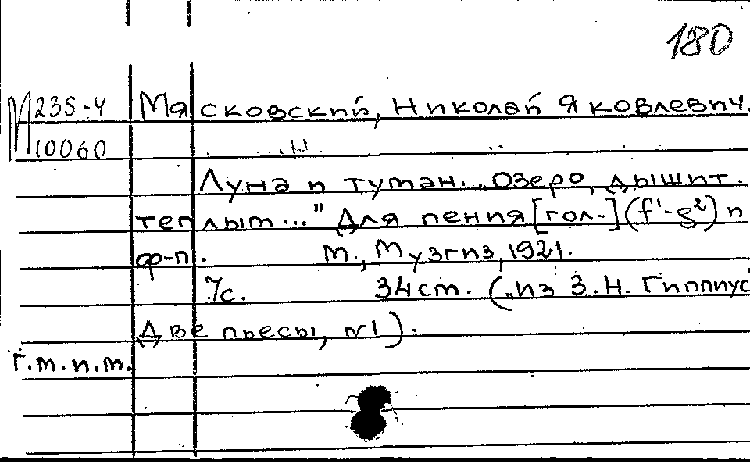 180
М 235-4 Мясковский, Николай Яковлевич.
10060
Луна и туман. „Озеро дышит
теплым..." Для пения [гол.] (f¹-g²) и
ф-п. М., Музгиз, 1921.
7с. 34см. („Из З.Н. Гиппиус
Две пьесы, №1).
Г.м.п.м.